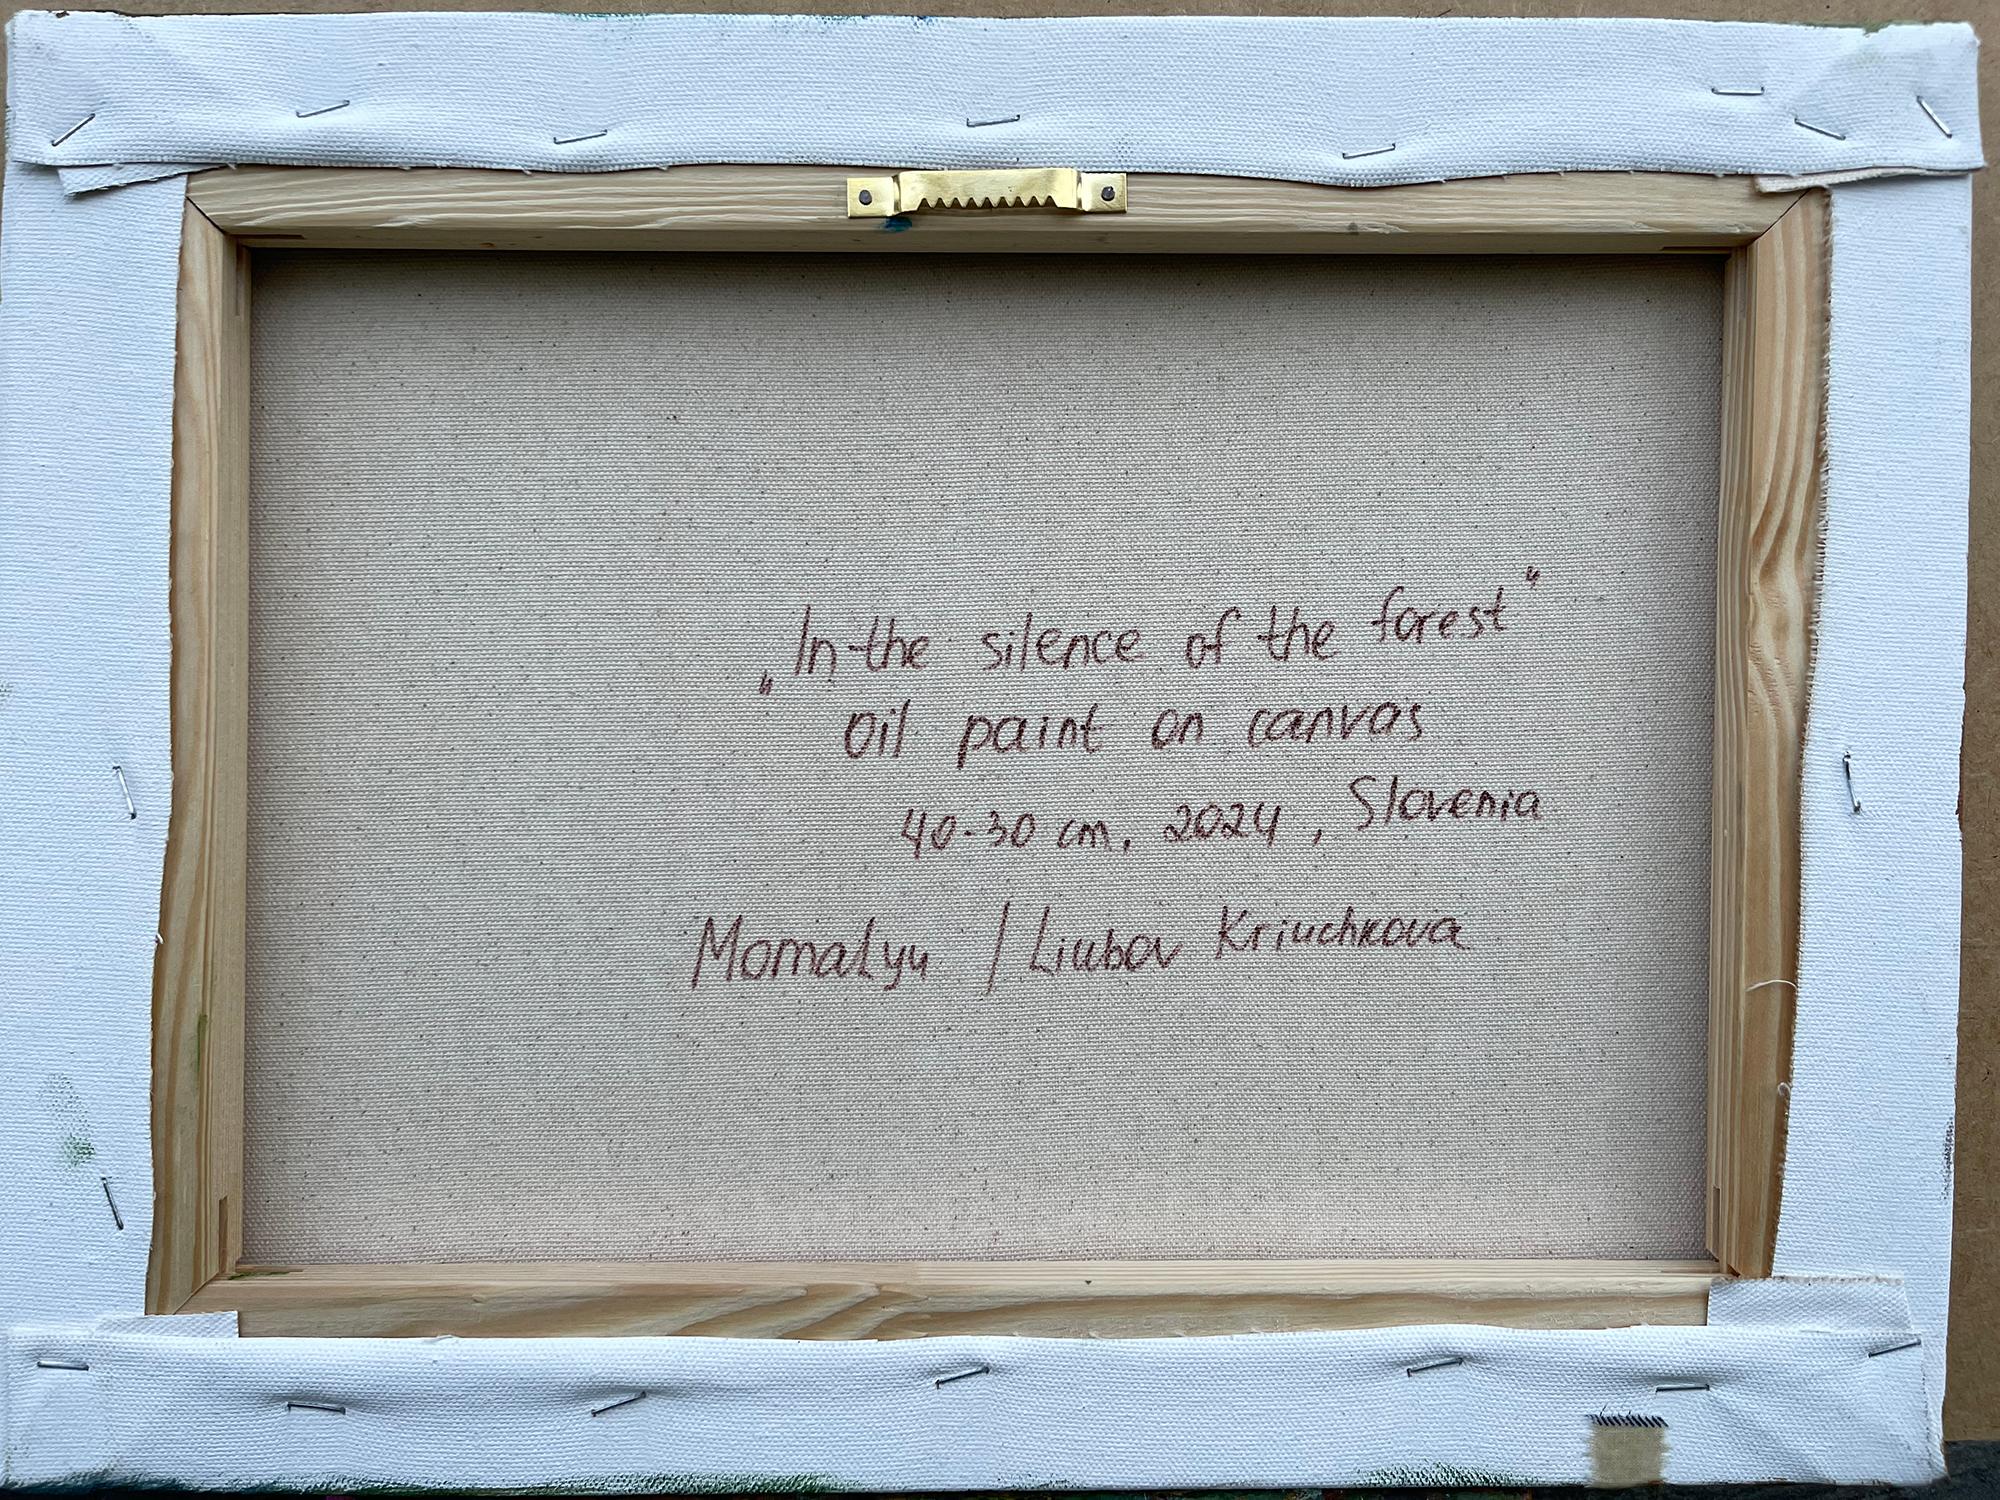 „In the silence of the forest"
oil paint on canvas
40·30 cm, 2024, Slovenia
Momalyu / Liubov Kriuchkova